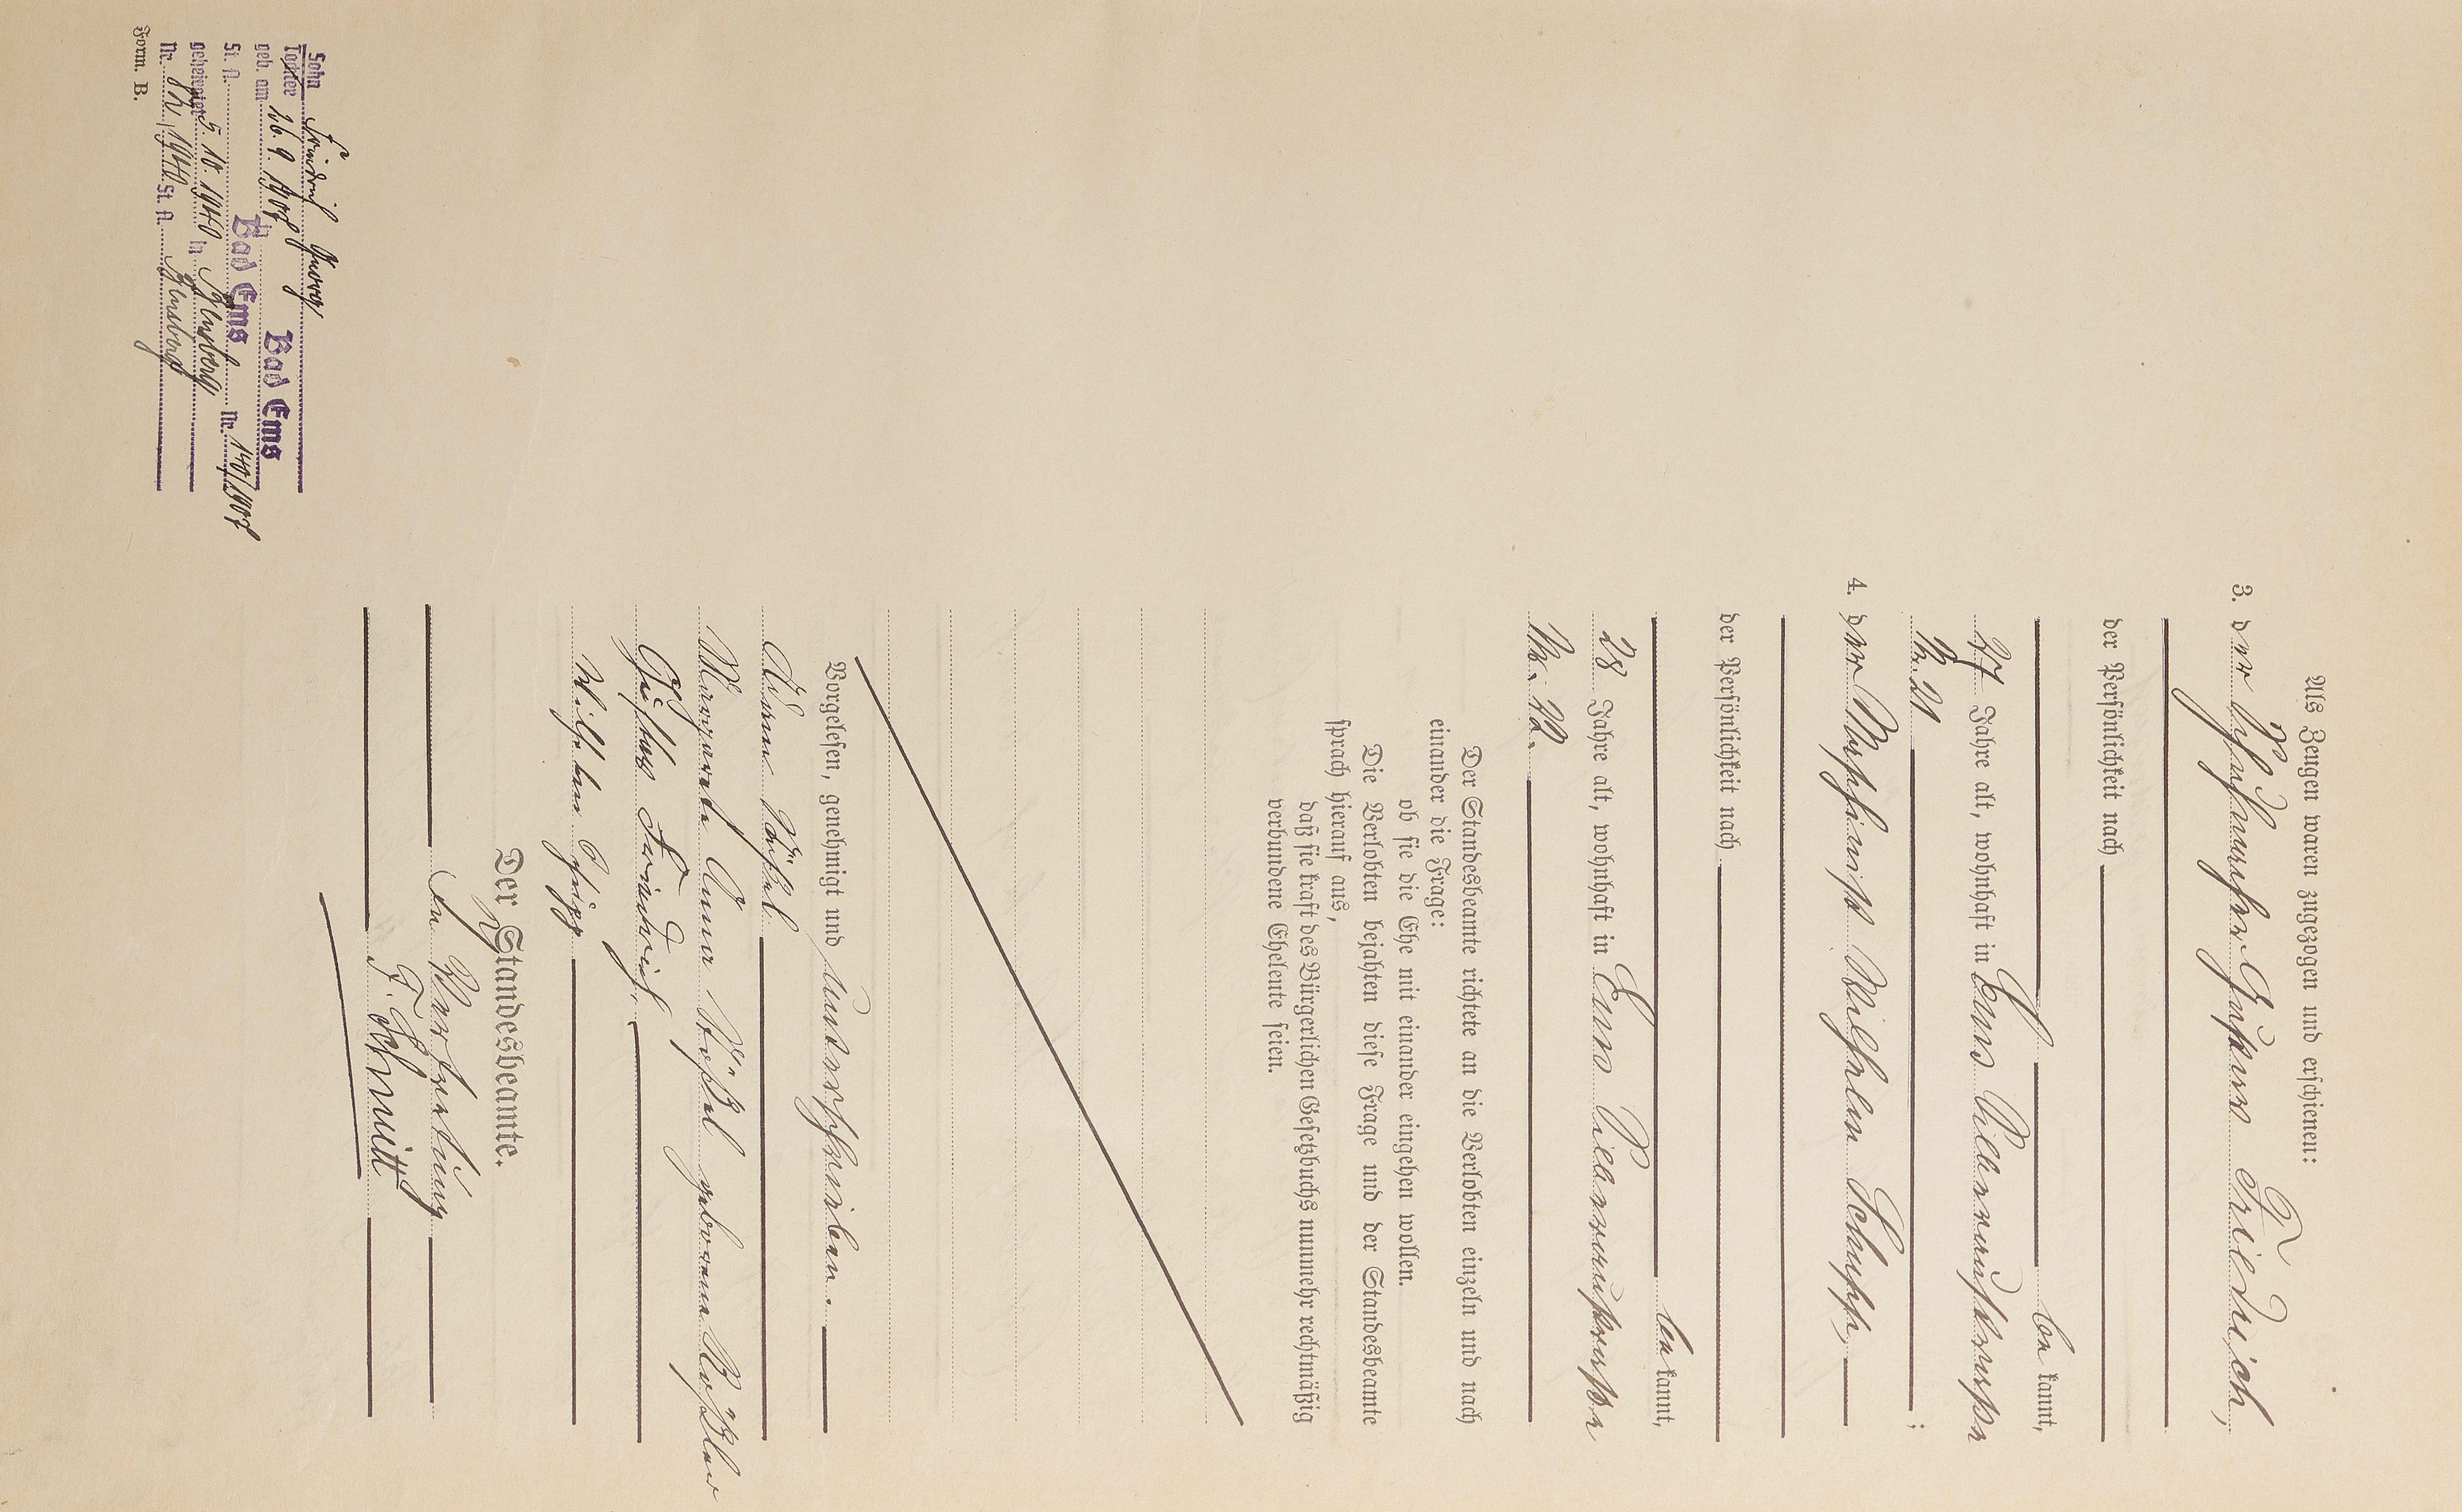 Als Zeugen waren zugezogen und erschienen:
3. der Schuhmacher Gustav Friedrich,
der Persönlichkeit nach
be kannt,
27 Jahre alt, wohnhaft in Ems Villenaustraße
Nr. 21 ;
4. der Wilhelm Schupp,
der Persönlichkeit nach
be kannt,
28 Jahre alt, wohnhaft in Ems
Nr.
Der Standesbeamte richtete an die Verlobten einzeln und nach
einander die Frage:
ob sie die Ehe mit einander eingehen wollen.
Die Verlobten bejahten diese Frage und der Standesbeamte
sprach hierauf aus,
daß sie kraft des Bürgerlichen Gesetzbuchs nunmehr rechtmäßig
verbundene Eheleute seien.
Vorgelesen, genehmigt und unterschrieben.
Margareta Anna geborene
Gustav Friedrich,
Wilhelm Schupp
Der Standesbeamte.
In Vertretung
F. Schmitt
Sohn Friedrich Georg
Tochter
geb. am 26. 9. 1907 in Bad Ems
St. A. Bad Ems Nr. 140/1907
geheiratet 5. 10. 1940 in
Nr. 1940 St. A.
Form. B.